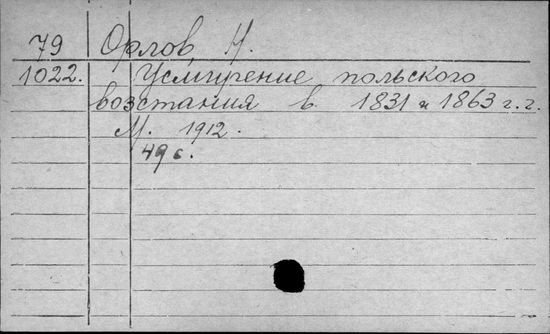 79 Орлов, Н.
1022. Усмирение польского
возстания в 1831 и 1863 г.г.
М. 1912.
49 с.